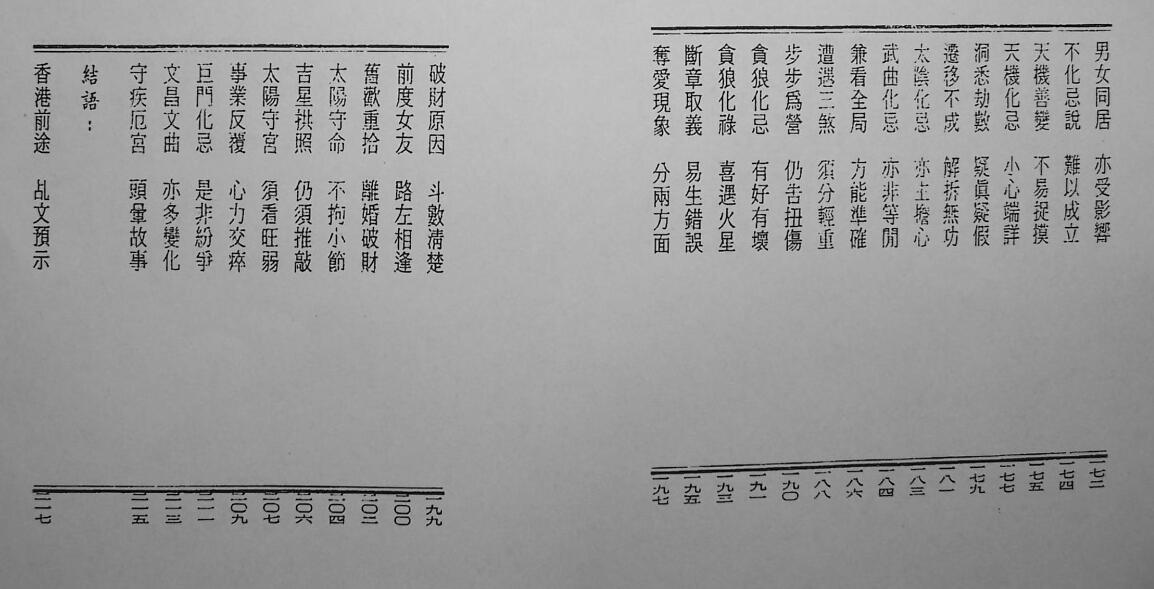 男女同居 亦受影響 一七二
不化忌說 難以成立 一七四
天機善變 不易捉摸 一七五
天機化忌 小心端詳 一七七
洞悉劫數 疑眞疑假 一七九
遷移不成 解拆無功 一八一
太陰化忌 亦主擔心 一八三
武曲化忌 亦非等閒 一八四
兼看全局 方能準確 一八六
遭遇三煞 須分輕重 一八八
步步爲營 仍告扭傷 一九〇
貪狼化忌 有好有壞 一九一
貪狼化祿 喜遇火星 一九三
斷章取義 易生錯誤 一九五
奪愛現象 分兩方面 一九七
破財原因 斗數清楚 一九九
前度女友 路左相逢 二〇〇
舊歡重拾 離婚破財 二〇二
太陽守命 不拘小節 二〇四
吉星拱照 仍須推敲 二〇六
太陽守宮 須看旺弱 二〇七
事業反覆 心力交瘁 二〇九
巨門化忌 是非紛爭 二一一
文昌文曲 亦多變化 二一三
守疾厄宮 頭暈故事 二一五
結語：
香港前途 乩文預示 二一七